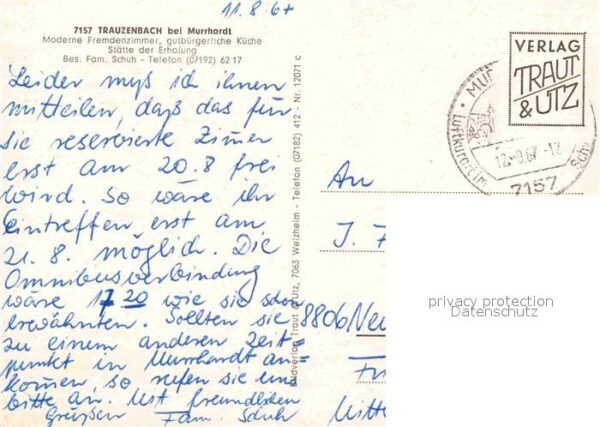 11.8.67
7157 TRAUZENBACH bei Murrhardt
Moderne Fremdenzimmer, gutbürgerliche Küche
Stätte der Erholung
Bes. Fam. Schuh - Telefon (07192) 62 17
Leider muß ich ihnen
mitteilen, daß das für
sie reservierte Zimmer
erst am 20.8 frei
wird. So wäre ihr
Eintreffen erst am
21.8. möglich. Die
Omnibusverbindung
wäre 17 20 wie sie schon
erwähnten. Sollten sie
zu einem anderen Zeit-
punkt in Murrhardt an-
kommen, so rufen sie uns
bitte an. Mit freundlichen
Grüßen Fam. Schuh
Bildverlag Traut & Utz, 7063 Welzheim - Telefon (07182) 412 - Nr. 12071 c
VERLAG
TRAUT
& UTZ
MUR
Luftkurort im
Sch
7157
An
J. F
8806 Neu
Mitte
privacy protection
Datenschutz